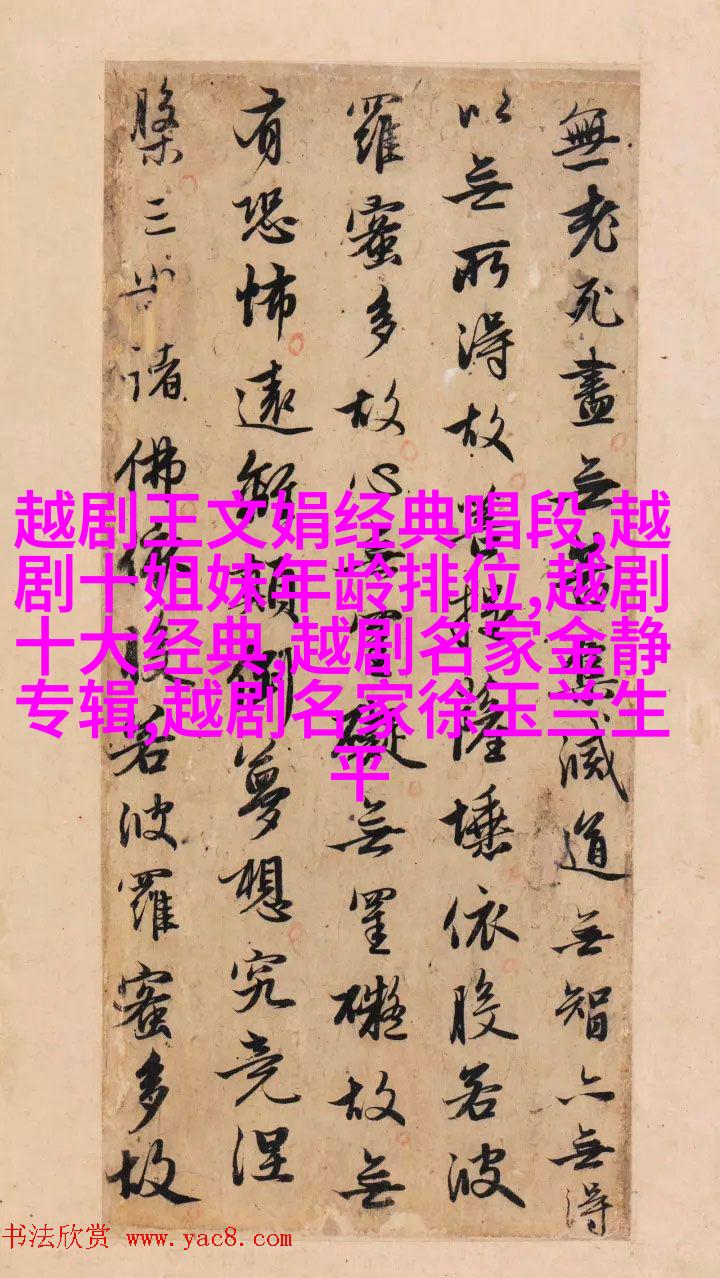 無老死盡无苦集滅道无智亦无得
以无所得故菩提薩埵依般若波
羅蜜多故心无罣礙无罣礙故无
有恐怖遠離顛倒夢想究竟涅
槃三世諸佛依般若波羅蜜多故
越剧王文娟经典唱段,越
剧十姐妹年龄排位,越剧
十大经典,越剧名家金静
专辑,越剧名家徐玉兰生
平
书法欣赏 www.yac8.com